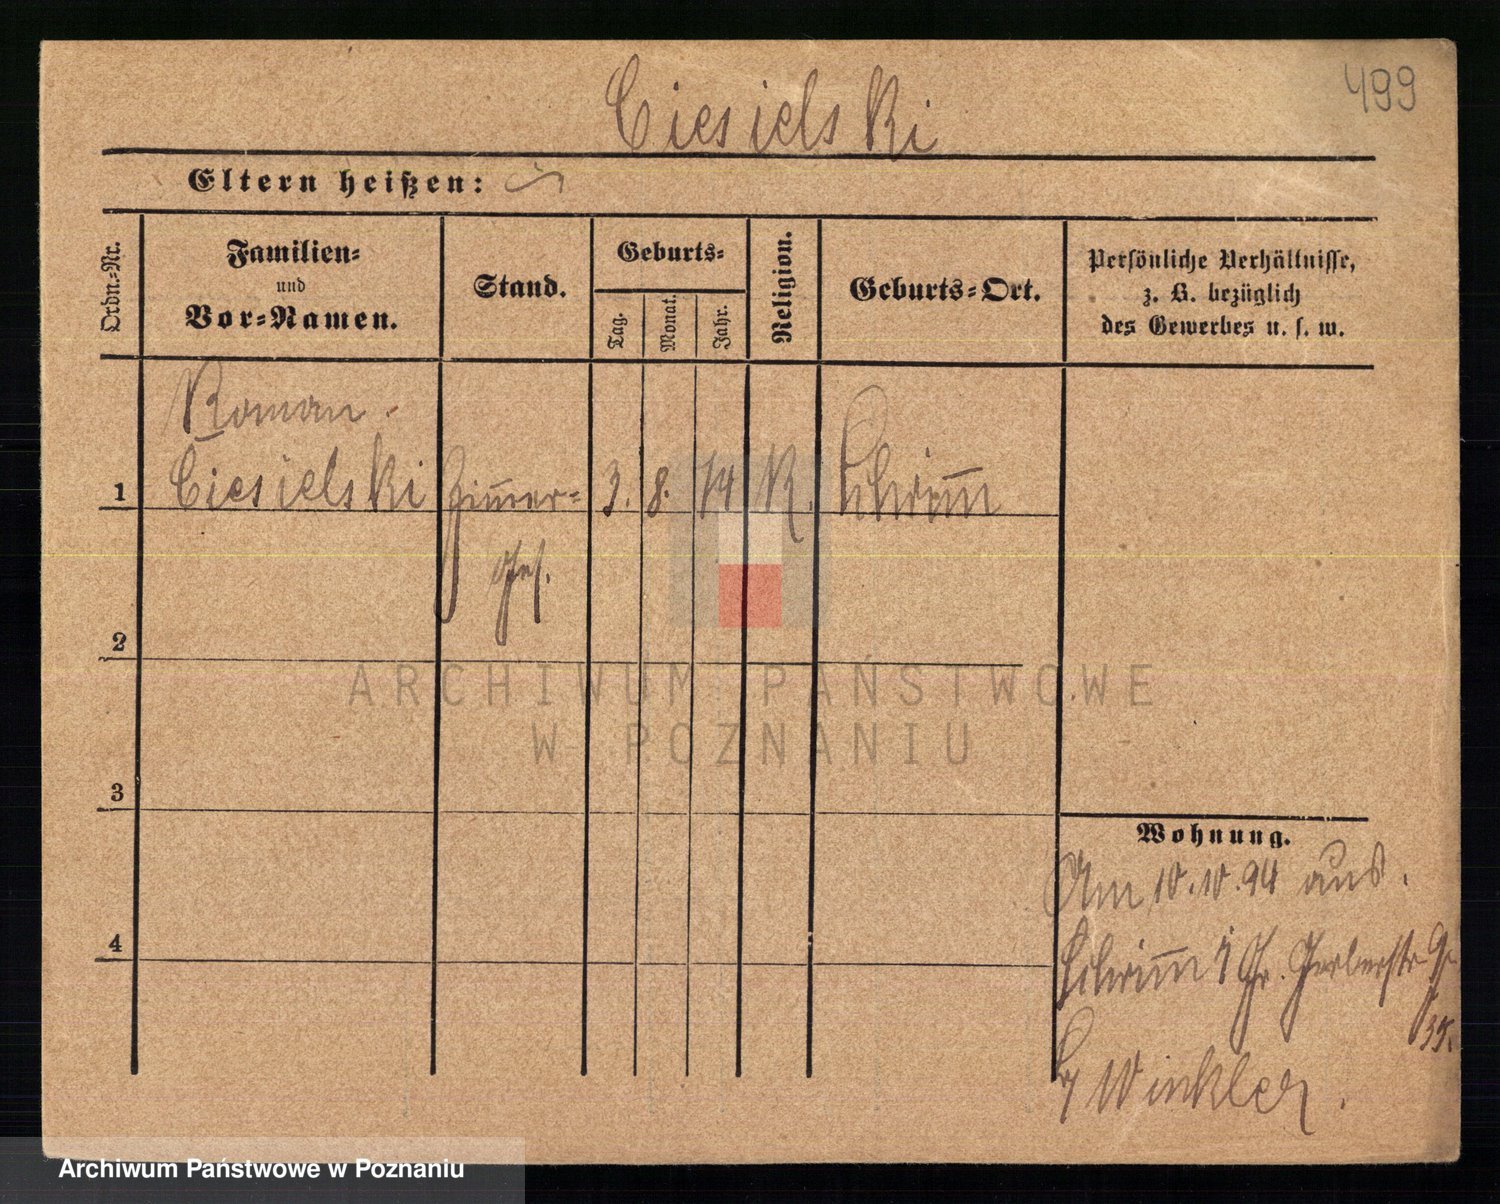 499
Ciesielski
Eltern heißen:
Ordn.-Nr.
Familien-
und
Vor-Namen.
Stand.
Geburts-
Tag.
Monat.
Jahr.
Religion.
Geburts-Ort.
Persönliche Verhältnisse,
z. B. bezüglich
des Gewerbes u. s. w.
Roman
1 Ciesielski Zim̅er- 3. 8. 74 K. Schrim̅
Ges.
2
3
4
ARCHIWUM PAŃSTWOWE
W POZNANIU
Wohnung.
Am 10.10.94 aus.
Schrim̅ Gr. Gerberstr
35.
Winkler.
Archiwum Państwowe w Poznaniu